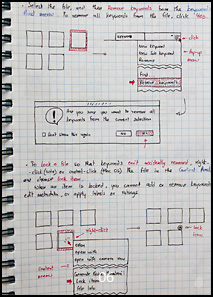 Select the file, and then Remove keywords from the keyword
menu. To remove all keywords from the file, click Yes.
click
New keyword
New Sub keyword
Rename
Find...
Remove keywords
popup menu
Are you sure you want to remove all
keywords from the current selection?
Don't show this again
No
Yes
To Lock a file so that keywords aren't accidentally removed, right-
click (win) or control-click (Mac OS) the file in the Content
and choose Lock item
When an item is locked, you cannot add or remove keywords,
edit metadata, or apply labels or ratings.
right-click
Open
Open with
Context menu
Lock item
File info
lock icon